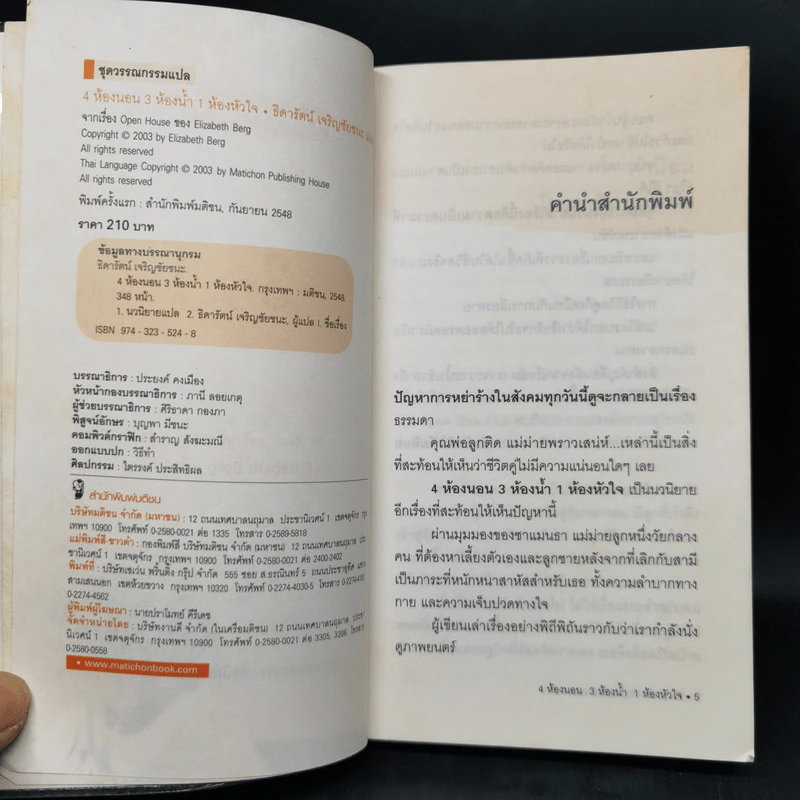 ชุดวรรณกรรมแปล
4 ห้องนอน 3 ห้องน้ำ 1 ห้องหัวใจ • ธิดารัตน์ เจริญชัยชนะ
จากเรื่อง Open House ของ Elizabeth Berg
Copyright © 2003 by Elizabeth Berg
All rights reserved
Thai Language Copyright © 2003 by Matichon Publishing House
All rights reserved
พิมพ์ครั้งแรก : สำนักพิมพ์มติชน, กันยายน 2548
ราคา 210 บาท
ข้อมูลทางบรรณานุกรม
ธิดารัตน์ เจริญชัยชนะ.
4 ห้องนอน 3 ห้องน้ำ 1 ห้องหัวใจ. กรุงเทพฯ : มติชน, 2548.
348 หน้า.
1. นวนิยายแปล 2. ธิดารัตน์ เจริญชัยชนะ, ผู้แปล I. ชื่อเรื่อง
ISBN 974 - 323 - 524 - 8
บรรณาธิการ : ประยงค์ คงเมือง
หัวหน้ากองบรรณาธิการ : ภานี ลอยเกตุ
ผู้ช่วยบรรณาธิการ : ศิริธาดา กองภา
พิสูจน์อักษร : บุญพา มีชนะ
คอมพิวต์กราฟิก : สำราญ สังฆะมณี
ออกแบบปก : วิธีทำ
ศิลปกรรม : ไตรรงค์ ประสิทธิผล
สำนักพิมพ์มติชน
บริษัทมติชน จำกัด (มหาชน) : 12 ถนนเทศบาลนฤมาล ประชานิเวศน์ 1 เขตจตุจักร
กรุงเทพฯ 10900 โทรศัพท์ 0-2580-0021 ต่อ 1235 โทรสาร 0-2589-5818
แม่พิมพ์สี-ขาวดำ : กองพิมพ์สี บริษัทมติชน จำกัด (มหาชน) 12 ถนนเทศบาลนฤมาล
ประชานิเวศน์ 1 เขตจตุจักร กรุงเทพฯ 10900 โทรศัพท์ 0-2580-0021 ต่อ 2400-2402
พิมพ์ที่ : บริษัทเซเว่น พริ้นติ้ง กรุ๊ป จำกัด 555 ซอย ส.ธรณินทร์ 5 ถนนประชาอุทิศ
สามเสนนอก เขตห้วยขวาง กรุงเทพฯ 10320 โทรศัพท์ 0-2274-4030-5 โทรสาร
0-2274-4562
ผู้พิมพ์ผู้โฆษณา : นายปราโมทย์ ศิริเดช
จัดจำหน่ายโดย : บริษัทงานดี จำกัด (ในเครือมติชน) 12 ถนนเทศบาลนฤมาล
ประชานิเวศน์ 1 เขตจตุจักร กรุงเทพฯ 10900 โทรศัพท์ 0-2580-0021 ต่อ 3305, 3306 โทรสาร
0-2580-0558
• www.matichonbook.com
คำนำสำนักพิมพ์
ปัญหาการหย่าร้างในสังคมทุกวันนี้ดูจะกลายเป็นเรื่อง
ธรรมดา
คุณพ่อลูกติด แม่ม่ายพราวเสน่ห์...เหล่านี้เป็นสิ่ง
ที่สะท้อนให้เห็นว่าชีวิตคู่ไม่มีความแน่นอนใดๆ เลย
4 ห้องนอน 3 ห้องน้ำ 1 ห้องหัวใจ เป็นนวนิยาย
อีกเรื่องที่สะท้อนให้เห็นปัญหานี้
ผ่านมุมมองของซาแมนธา แม่ม่ายลูกหนึ่งวัยกลาง
คน ที่ต้องหาเลี้ยงตัวเองและลูกชายหลังจากที่เลิกกับสามี
เป็นภาระที่หนักหนาสาหัสสำหรับเธอ ทั้งความลำบากทาง
กาย และความเจ็บปวดทางใจ
ผู้เขียนเล่าเรื่องอย่างพิถีพิถันราวกับว่าเรากำลังนั่ง
ดูภาพยนตร์
4 ห้องนอน 3 ห้องน้ำ 1 ห้องหัวใจ • 5